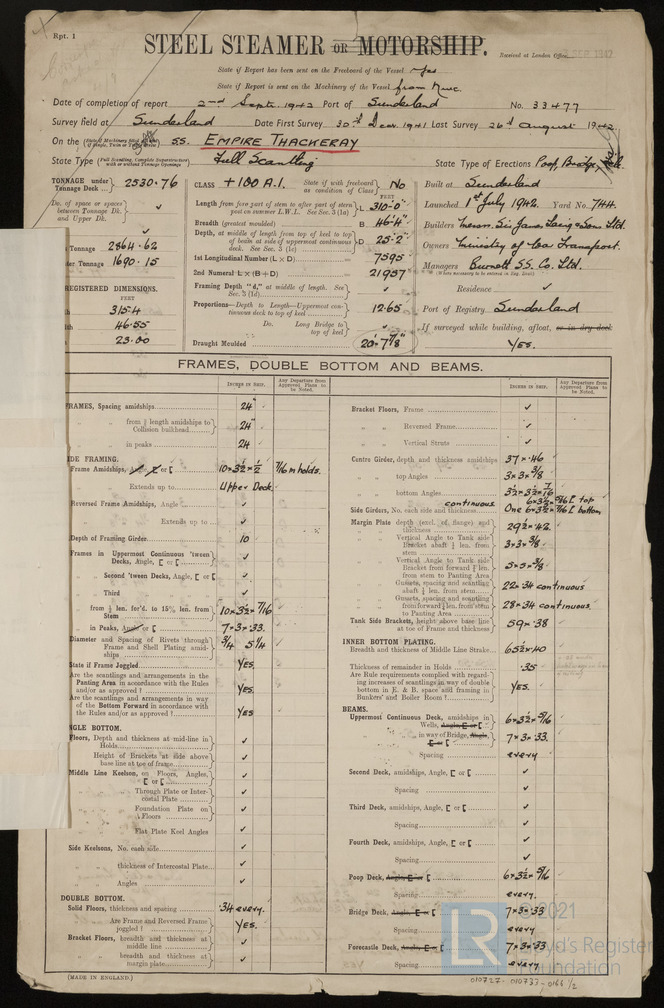 Rpt. 1
STEEL STEAMER OR MOTORSHIP.
Received at London Office
State if Report has been sent on the Freeboard of the Vessel Yes
State if Report is sent on the Machinery of the Vessel from Nwc.
Date of completion of report 2nd Septr. 1942 Port of Sunderland No. 33477
Survey held at Sunderland Date First Survey 30th Decr. 1941 Last Survey 26th August 1942
On the SS. EMPIRE THACKERAY
State Type (Full Scantling, Complete Superstructure with or without Tonnage Openings) Full Scantling State Type of Erections Poop, Bridge,
TONNAGE under Tonnage Deck ... 2530.76
Do. of space or spaces between Tonnage Dk. and Upper Dk.
Tonnage 2864.62
Tonnage 1690.15
REGISTERED DIMENSIONS.
FEET
315.4
46.55
23.00
CLASS +100 A.1. State if with freeboard as condition of Class No
FEET
Length from fore part of stem to after part of stern post on summer L.W.L. See Sec. 3 (1a) L 310-0"
Breadth (greatest moulded) B 46-4"
Depth, at middle of length from top of keel to top of beam at side of uppermost continuous deck. See Sec. 3 (1c) D 25-2"
1st Longitudinal Number (L × D) 7595
2nd Numeral L × (B + D) 21957
Framing Depth "d," at middle of length. See Sec. 3 (1d)
Proportions—Depth to Length—Uppermost continuous deck to top of keel 12.65
Do. Long Bridge to top of keel
Draught Moulded 20'-7 7/8"
Built at Sunderland
Launched 1st July 1942. Yard No. 744.
Builders Messrs. Sir James Laing & Sons Ltd.
Owners Ministry of War Transport.
Managers Burnett SS. Co. Ltd.
Residence ✓
Port of Registry Sunderland
If surveyed while building, afloat, or in dry dock
YES.
FRAMES, DOUBLE BOTTOM AND BEAMS.
INCHES IN SHIP.
Any Departure from Approved Plans to be Noted.
FRAMES, Spacing amidships 24"
from ⅗ length amidships to Collision bulkhead 24"
in peaks 24
Frame Amidships, 10×3½×½ 7/16 in holds.
Extends up to Upper Deck
Reversed Frame Amidships, Angle ✓
Extends up to ✓
Depth of Framing Girder 10
Frames in Uppermost Continuous 'tween Decks, Angle, [ or [ ✓
Second 'tween Decks, Angle, [ or [ ✓
Third ✓
from ⅕ len. for'd. to 15% len. from Stem 10×3½×7/16
in Peaks, Angle or [ 7×3×.33.
Diameter and Spacing of Rivets through Frame and Shell Plating amidships ¾ 5¼
State if Frame Joggled YES.
Are the scantlings and arrangements in the Panting Area in accordance with the Rules and/or as approved ? YES.
Are the scantlings and arrangements in way of the Bottom Forward in accordance with the Rules and/or as approved ? YES
Floors, Depth and thickness at mid-line in Holds ✓
Height of Brackets at side above base line at toe of frame ✓
Middle Line Keelson, on Floors, Angles, [ or [ ✓
Through Plate or Intercostal Plate ✓
Foundation Plate on Floors ✓
Flat Plate Keel Angles ✓
Side Keelsons, No. each side ✓
thickness of Intercostal Plate ✓
Angles ✓
DOUBLE BOTTOM.
Solid Floors, thickness and spacing .34 every.
Are Frame and Reversed Frame joggled ? YES.
Bracket Floors, breadth and thickness at middle line ✓
breadth and thickness at margin plate ✓
(MADE IN ENGLAND.)
INCHES IN SHIP.
Any Departure from Approved Plans to be Noted.
Bracket Floors, Frame ✓
Reversed Frame ✓
Vertical Struts ✓
Centre Girder, depth and thickness amidships 37×.46
top Angles 3×3×3/8
bottom Angles 3½×3½×7/16
Side Girders, No. each side and thickness continuous One
Margin Plate depth (excl. of flange) and thickness 29½×.42
Vertical Angle to Tank side Bracket abaft ¼ len. from stem 3×3×3/8
Vertical Angle to Tank side Bracket from forward ¼ len. from stem to Panting Area
Gussets, spacing and scantling abaft ¼ len. from stem 22×.34 continuous
Gussets, spacing and scantling from forward ¼ len. from stem to Panting Area 28×.34 continuous.
Tank Side Brackets, height above base line at toe of Frame and thickness 59×.38
INNER BOTTOM PLATING.
Breadth and thickness of Middle Line Strake 65½×.40
Thickness of remainder in Holds .35
Are Rule requirements complied with regarding increases of scantlings in way of double bottom in E. & B. space and framing in Bunkers and Boiler Room ? YES.
BEAMS.
Uppermost Continuous Deck, amidships in Wells, Angle, [ or [ 6×3½×5/16
in way of Bridge, Angle, [ or [ 7×3×.33
Spacing every
Second Deck, amidships, Angle, [ or [ ✓
Spacing ✓
Third Deck, amidships, Angle, [ or [ ✓
Spacing ✓
Fourth Deck, amidships, Angle, [ or [ ✓
Spacing ✓
Poop Deck, Angle, [ or [ 6×3½×5/16
Spacing every.
Bridge Deck, Angle, [ or [ 7×3×.33
Spacing every
Forecastle Deck, Angle, [ or [ 7×3×.33
Spacing every
LR
© 2021
Lloyd's Register
Foundation
010727-010733-0166 1/2